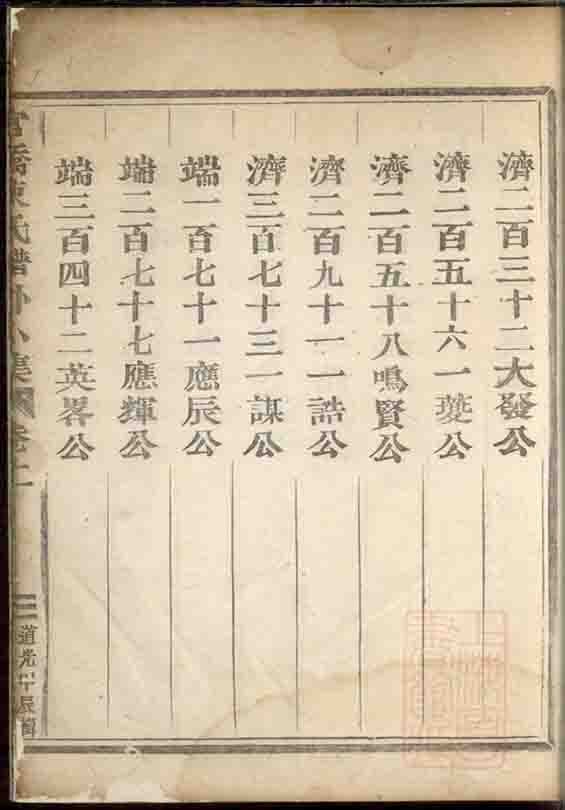 濟二百三十二大發公
濟二百五十六一夔公
濟二百五十八鳴賢公
濟二百九十一一誥公
濟三百七十三一謀公
端一百七十一應辰公
端二百七十七應輝公
端三百四十二英畧公
氏譜外小集 卷十一
三
道光